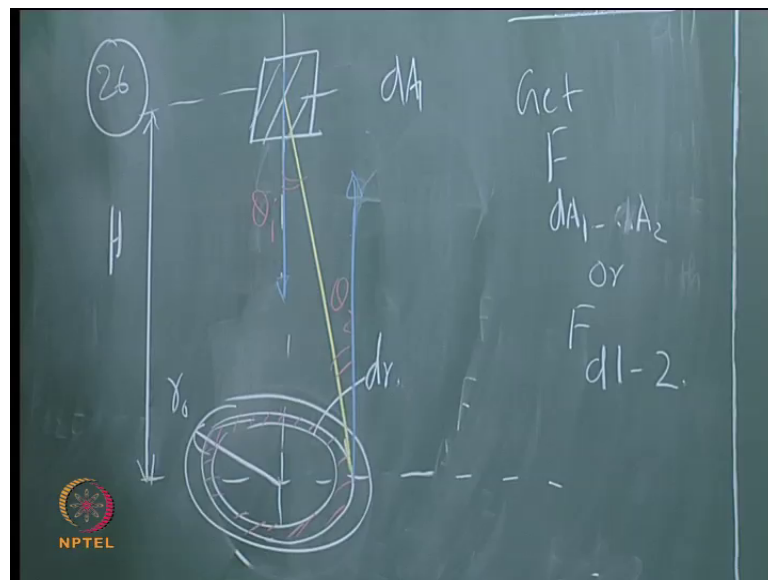 26
dA1
Get
F
dA1-dA2
or
F
d1-2.
H
θ1
θ2
dr.
r0
NPTEL